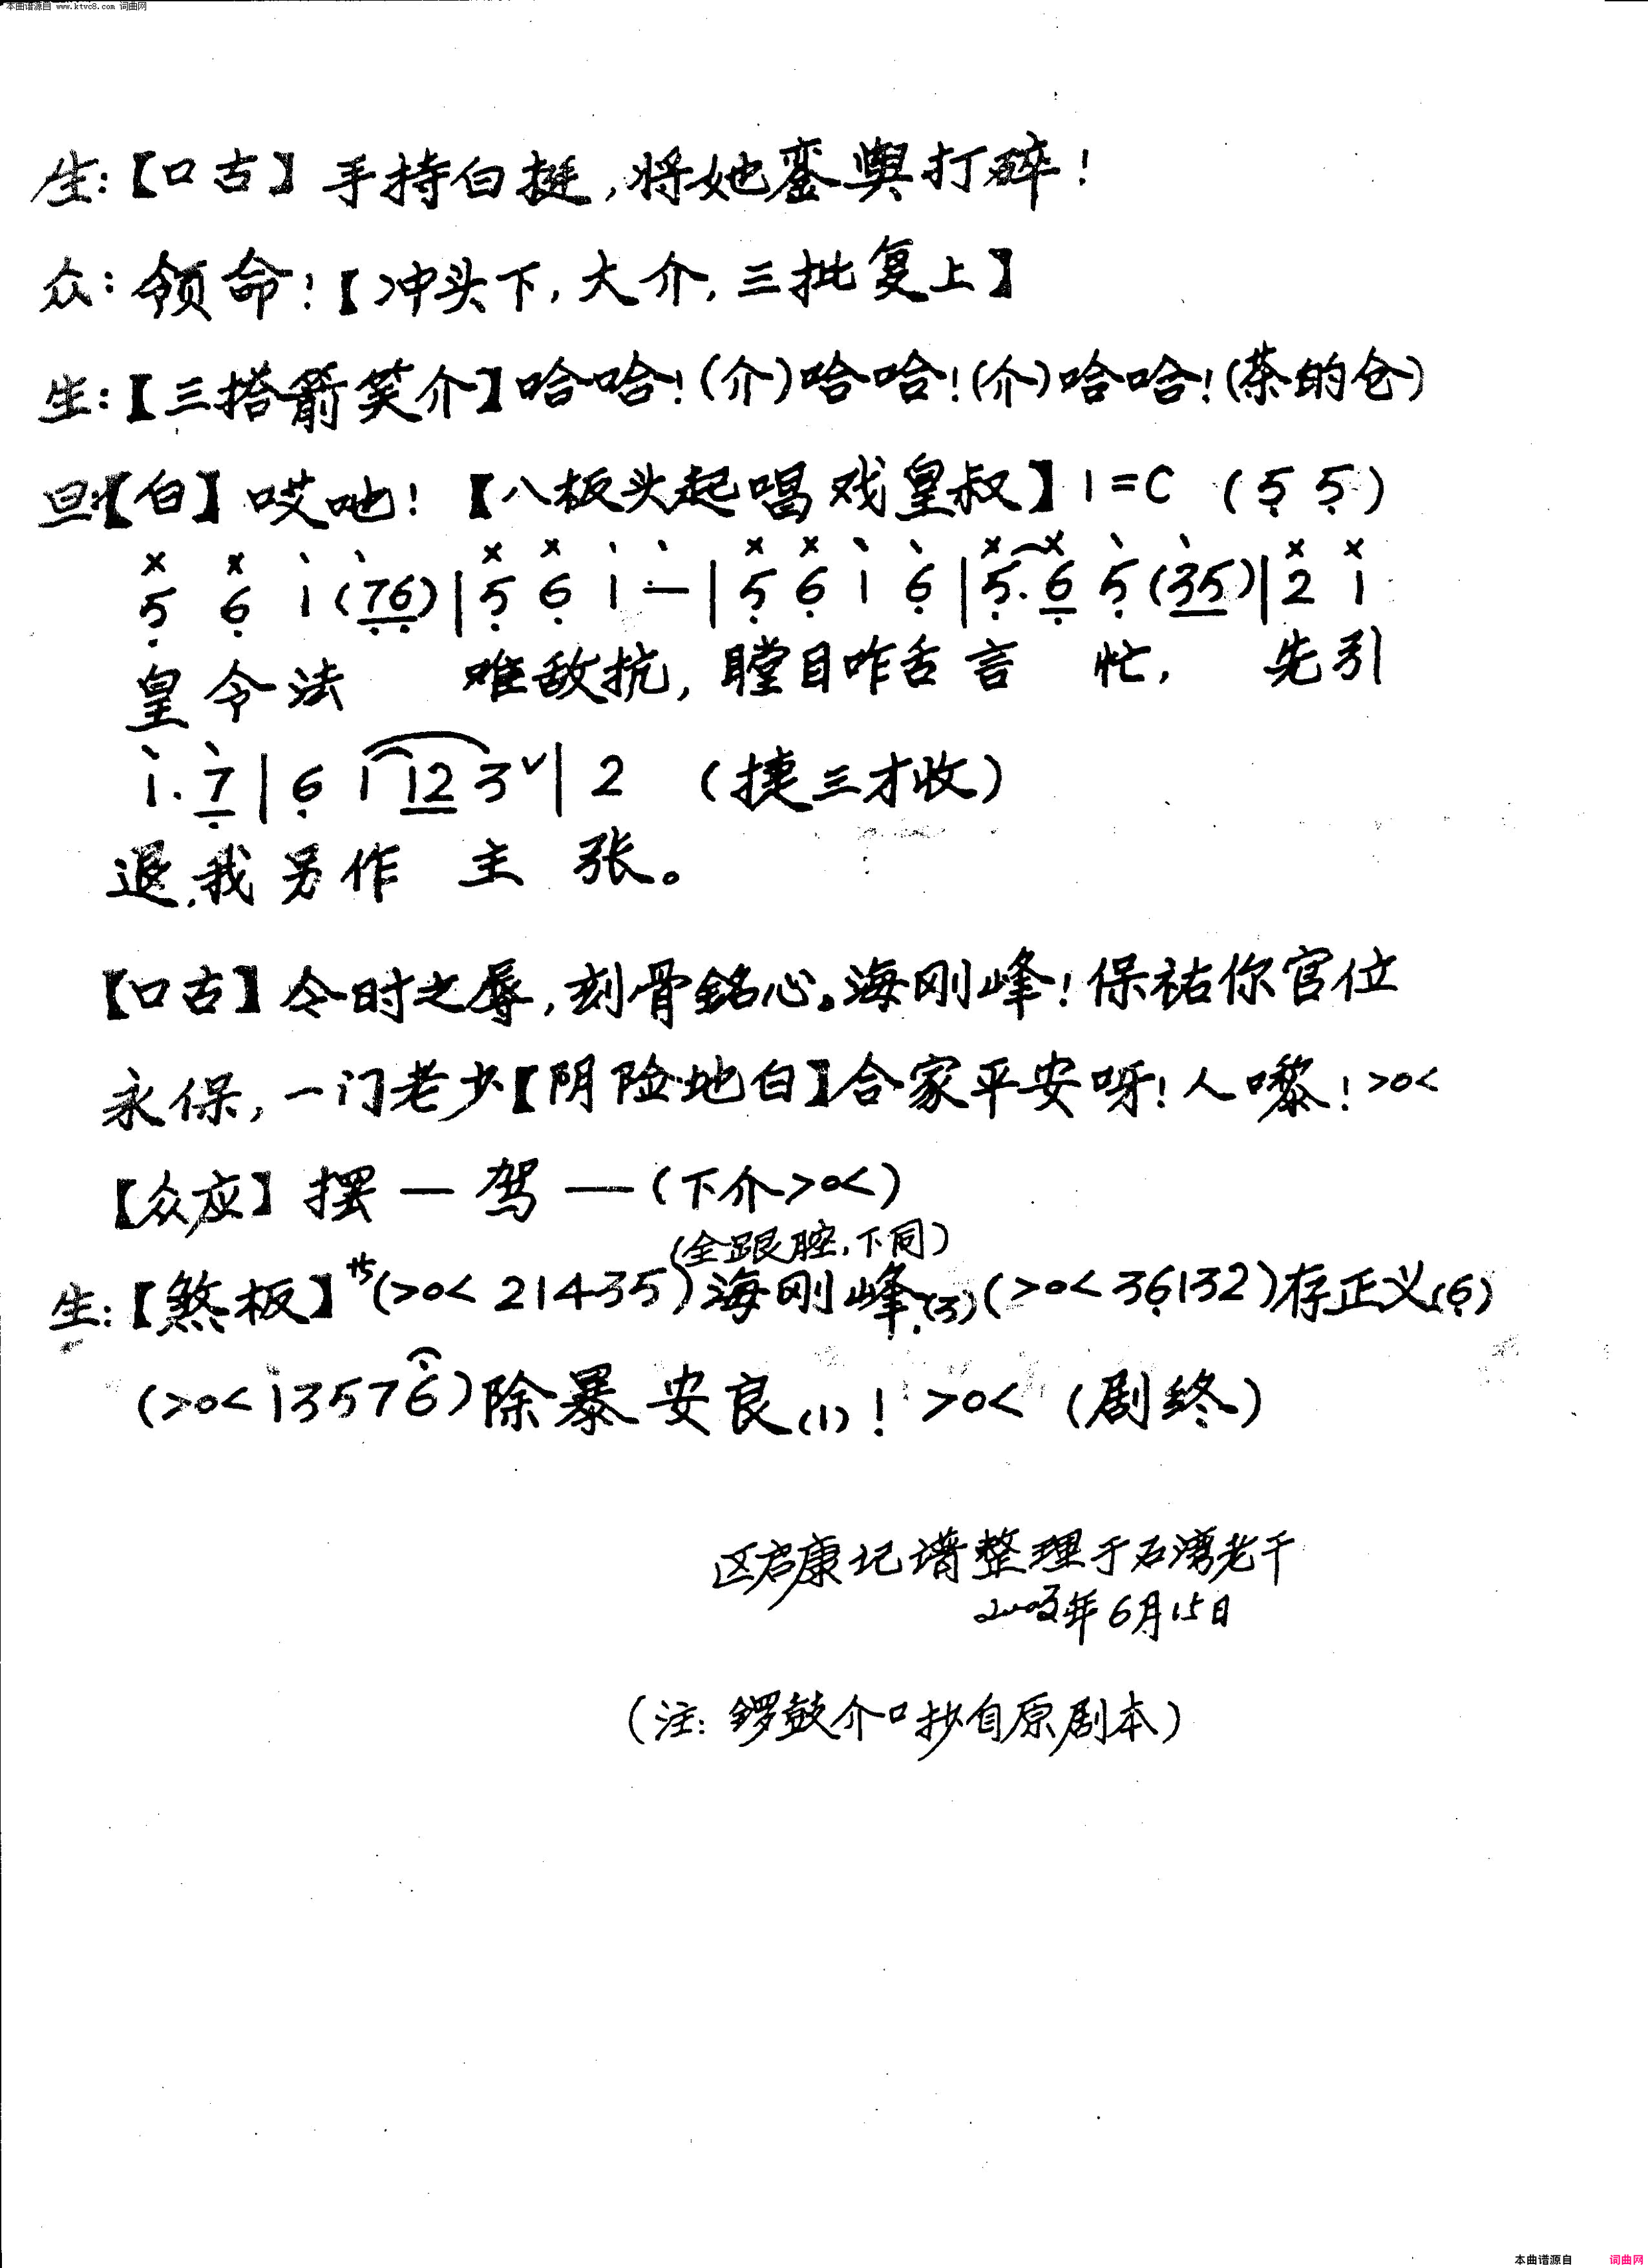 本曲谱源自 www.ktvc8.com 词曲网
生:【口古】手持白挺,将她銮舆打碎!
众:领命!【冲头下,大介,三批复上】
生:【三搭箭笑介】哈哈!(介)哈哈!(介)哈哈!(茶的仓)
旦:【白】哎吔!【八板头起唱戏皇叔】1=C (5̣ 5̣)
5̣ 6̣ 1 (7̣6̣) | 5̣ 6̣ 1 — | 5̣ 6̣ 1 6̣ | 5̣. 6̣ 5̣ (35) | 2 1
皇令法 难敌抗, 瞠目咋舌言 忙, 先引
1. 7̣ | 6̣ 1 12 3 ˅ | 2 (捷三才收)
退,我另作 主 张。
【口古】今时之辱,刻骨銘心。海刚峰!保祐你官位
永保,一门老少【阴险地白】合家平安呀!人嚟!>o<
【众应】摆 — 驾 — (下介>o<)
(全跟腔,下同)
生:【煞板】サ(>o< 21435)海刚峰.(3)(>o< 36̣132)存正义(6̣)
(>o< i3576)除暴安良(1)! >o< (剧终)
区启康记谱整理于石湾老干
6月15日
(注:锣鼓介口抄自原剧本)
本曲谱源自 词曲网